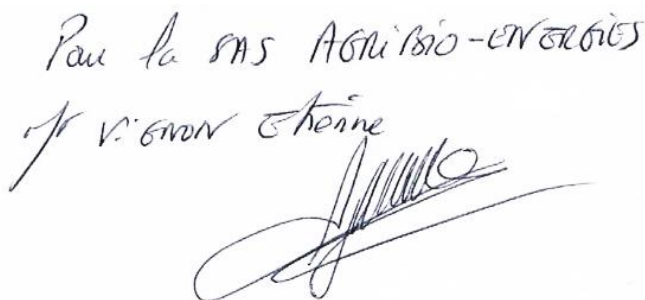 Pour la SAS AGRIBIO-ENERGIES
Mr ViGNON Etienne